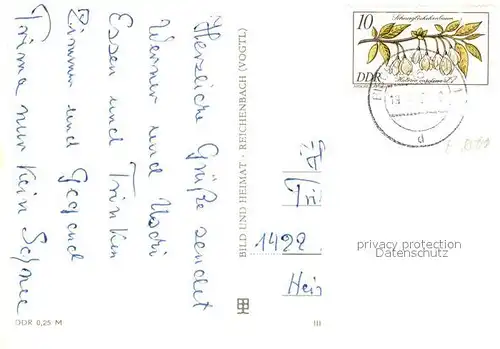 Herzliche Grüße sendet
Werner und Uschi
Essen und Trinken
Zimmer und Gegend
Prima nur kein Schnee
BILD UND HEIMAT · REICHENBACH (VOGTL)
DDR 0,25 M
III
10
Schneeglöckchenbaum
DDR
Halesia carolina L.
d
1492
privacy protection
Datenschutz